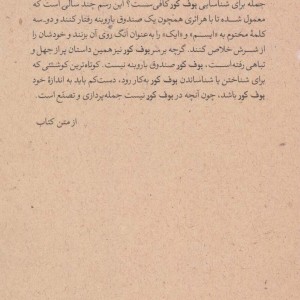 جمله برای شناسایی بوف کور کافی‌ست؟ این رسم چند سالی است که
معمول شده تا با هر اثری همچون یک صندوق بازوبنه رفتار کنند و دو-سه
کلمه مختوم به «ایسم» و «ایک» را به‌عنوان اَنگ روی آن بزنند و خودشان را
از شرش خلاص کنند. گرچه بر سر بوف کور نیز همین داستان پر از جهل و
تباهی رفته است، بوف کور صندوق بازوبنه نیست. کوتاه‌ترین کوششی که
برای شناختن یا شناساندن بوف کور به‌کار رود، دست‌کم باید به اندازهٔ خودِ
بوف کور باشد، چون آنچه در بوف کور نیست جمله‌پردازی و تصنع است.
از متن کتاب